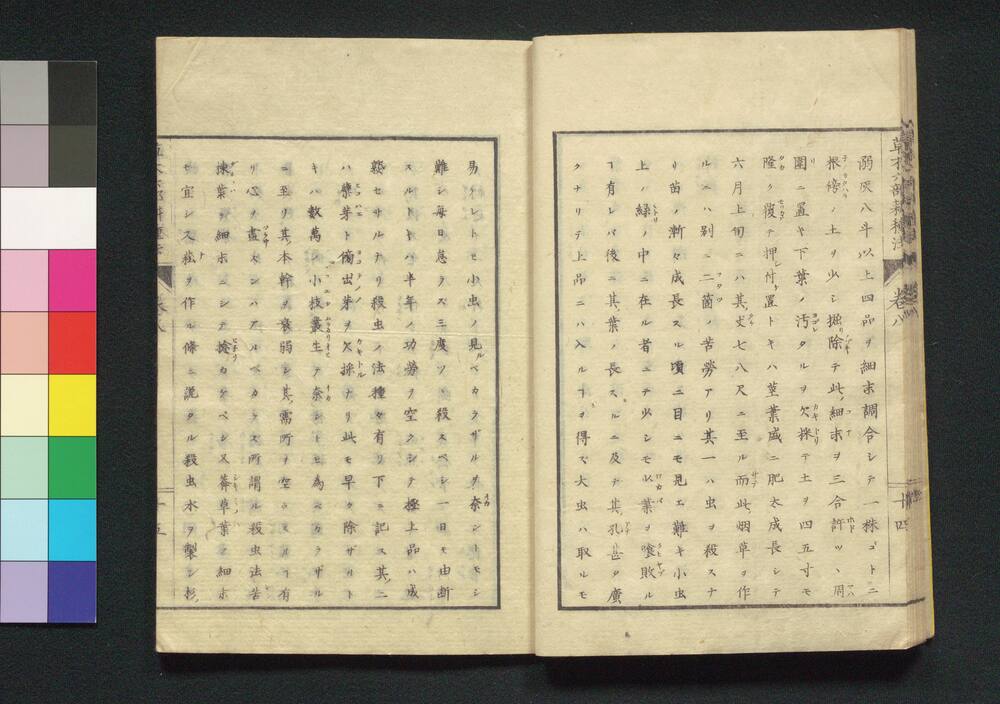 草木六部耕種法 卷八 十四
溺灰八斗以上四品ヲ細末調合シテ一株ゴトニ
根傍ノ土ヲ少シ掘除テ此細末ヲ三合許ツヽ周
圍ニ置キ下葉ノ汚タルヲ欠採テ土ヲ四五寸モ
隆ク復テ押付置トキハ莖葉盛ニ肥太成長シテ
六月上旬ニハ其丈七八尺ニ至ル而此烟草ヲ作
ルニハ別ニ二箇ノ苦勞アリ其一ハ虫ヲ殺スナ
リ苗ノ漸々成長スル頃ニ目ニモ見エ難キ小虫
上ノ緑ノ中ニ在ル者ニテ少シモ以葉ヲ喰敗ル
ヿ有レバ後ニ其葉ノ長スルニ及テ其孔甚タ廣
クナリテ上品ニハ入ルヿヲ得ズ大虫ハ取ルモ
易ケレトモ小虫ノ見ルベカラザルヲ奈ントモシ
難シ毎日怠ラズ三度ツヽ殺スベシ一日モ由斷
スルトキハ半年ノ功勞ヲ空クシテ極上品ハ成
就セサルナリ殺虫ノ法種々有リ下ニ記ス其二
ハ蘖芽ト傍出芽ヲ欠採ナリ此モ早ク除ザルト
キハ數萬ノ小枝叢生テ奈ントモ為ベカラザル
ニ至リ其本幹ヲ衰弱シ其需所ヲ空ウスルヿ有
リ心ヲ盡スンハアルベカラス所謂ル殺虫法苦
楝葉ヲ細末ニシテ撚カクベシ又莽草葉ノ細末
モ宜シ又菘ヲ作ル條ニ説タル殺虫水ヲ製シ杉